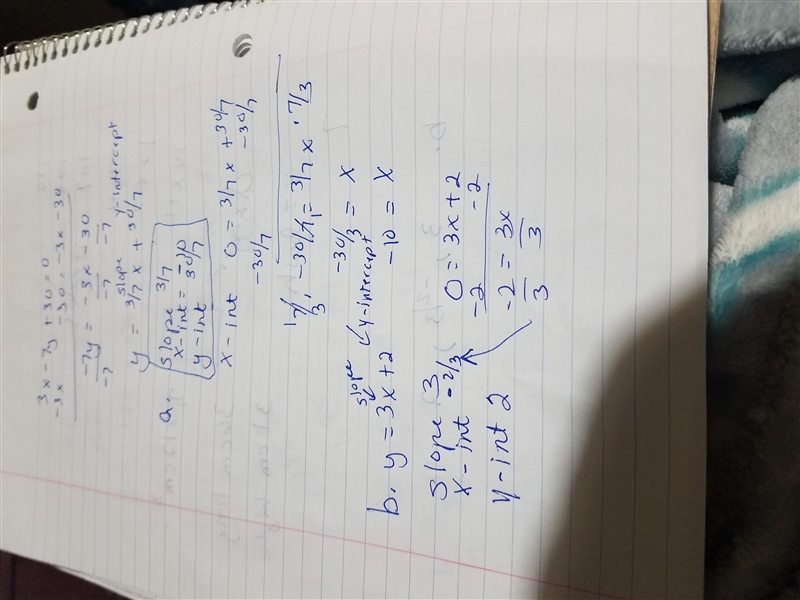 3x - 7y + 30 = 0
-3x -30 = -3x -30
-7y = -3x -30
-7 -7 -7
slope y-intercept
y = 3/7 x + 30/7
a. slope 3/7
x-int = -10
y-int 30/7
x-int 0 = 3/7 x + 30/7
-30/7 -30/7
7/3 · -30/7 = 3/7 x · 7/3
-30/3 = x
-10 = x
slope y-intercept
b. y = 3x + 2
slope 3
x-int -2/3
y-int 2
0 = 3x + 2
-2 -2
-2 = 3x
3 3